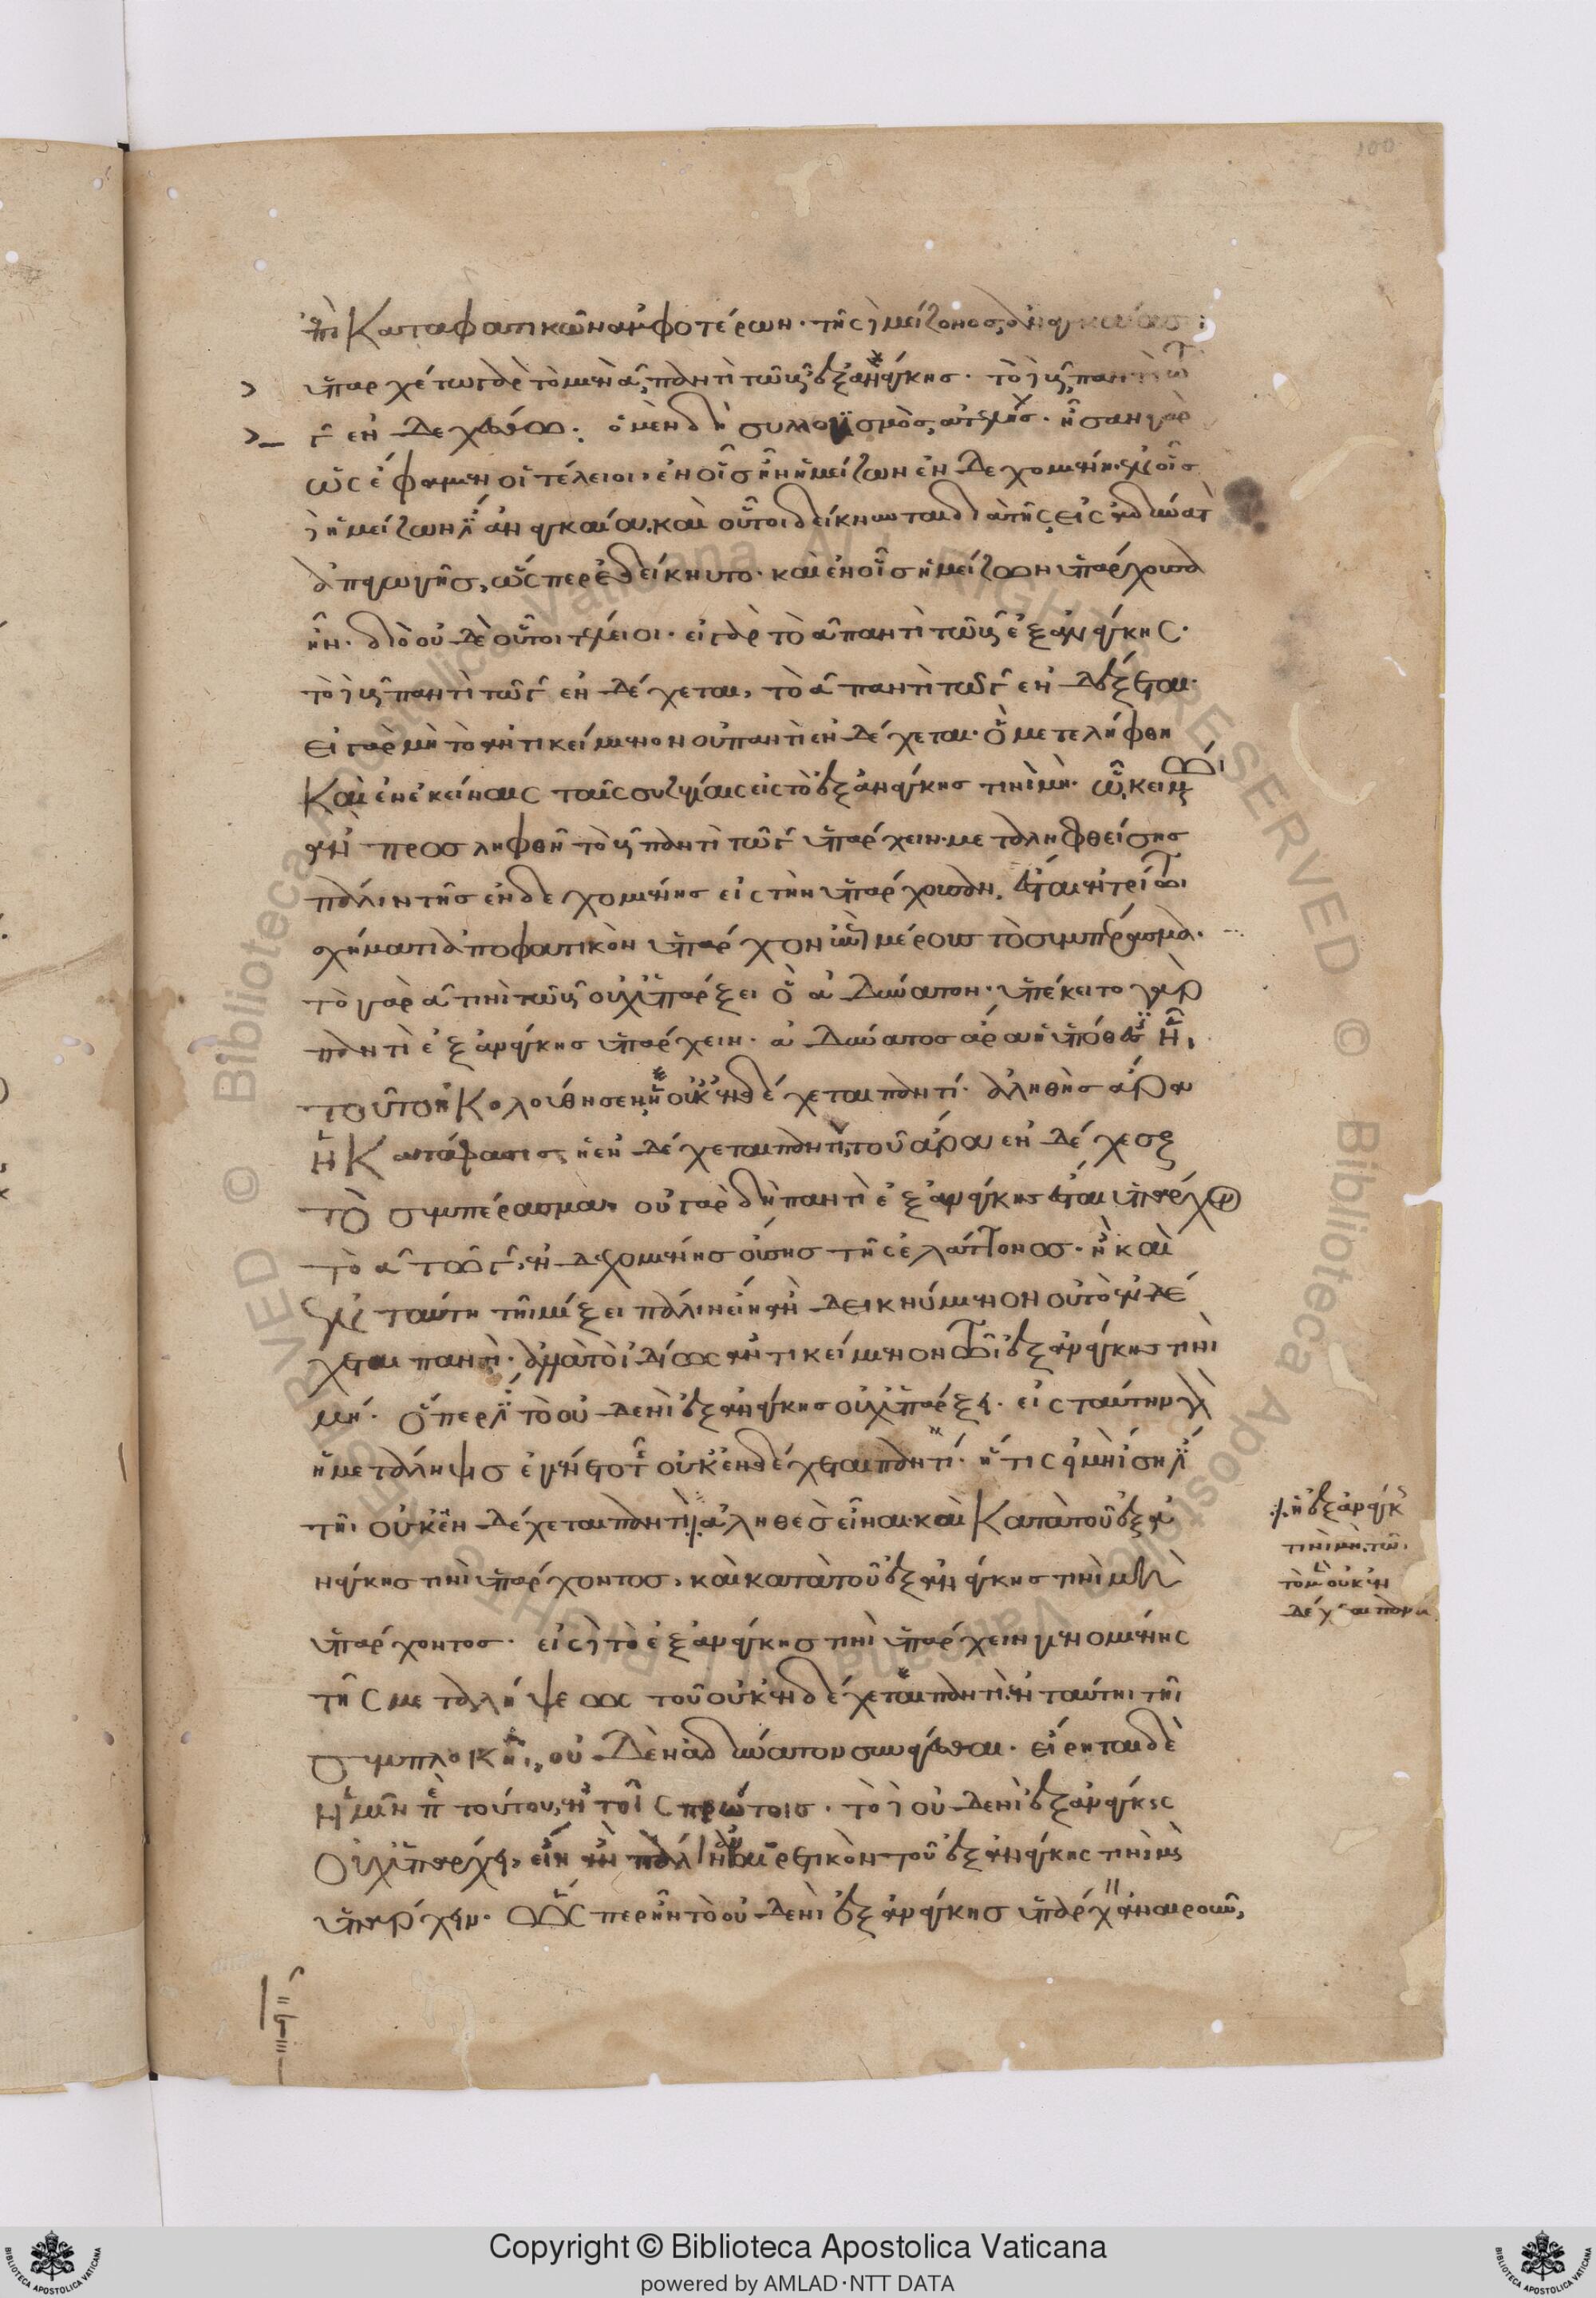 100
ἐπὶ καταφατικῶν ἀμφοτέρων· τῆς δὲ μείζονος ἀναγκαίας:
ὑπαρχέτω γὰρ τὸ μὲν α παντὶ τῶ β ἐξ ἀνάγκης· τὸ δὲ β παντὶ τῶ
γ ἐνδεχέσθω· ὁ μὲν δὴ συλλογισμὸς ἀτελής· ἦσαν γὰρ
ὡς ἔφαμεν οἱ τέλειοι, ἐν οἷς ἦν ἡ μείζων ἐνδεχομένη. ἐν οἷς
δὲ ἡ μείζων ἐστὶν ἀναγκαία, καὶ οὗτοι δείκνυνται διὰ τῆς εἰς ἀδύνατον
ἀπαγωγῆς, ὥσπερ ἐδείκνυτο· καὶ ἐν οἷς ἡ μείζων ὑπάρχουσα
ἦν· διὸ οὐδὲ οὗτοι τέλειοι· εἰ γὰρ τὸ α παντὶ τῶ β ἐξ ἀνάγκης·
τὸ δὲ β παντὶ τῶ γ ἐνδέχεται, τὸ α παντὶ τῶ γ ἐνδέξεται·
εἰ γὰρ μὴ τὸ ἀντικείμενον οὐ παντὶ ἐνδέχεται· ὃ μετελήφθη
καὶ ἐν ἐκείναις ταῖς συζυγίαις εἰς τὸ ἐξ ἀνάγκης τινὶ μή·
ἐὰν προσληφθῆ τὸ β παντὶ τῶ γ ὑπάρχειν· μεταληφθείσης
πάλιν τῆς ἐνδεχομένης εἰς τὴν ὑπάρχουσαν, ἔσται ἐν τρίτωι
σχήματι ἀποφατικὸν ὑπάρχον ἐπὶ μέρους τὸ συμπέρασμα·
τὸ γὰρ α τινὶ τῶ β οὐχ ὑπάρξει ὃ ἀδύνατον· ὑπέκειτο γὰρ
παντὶ ἐξ ἀνάγκης ὑπάρχειν· ἀδύνατος ἄρα ἡ ὑπόθεσις ἧ
τοῦτο ἠκολούθησεν, ἡ οὐκ ἐνδέχεται παντί· ἀληθὴς ἄρα
ἡ κατάφασις ἡ ἐνδέχεται παντί, τοῦ ἄρα ἐνδέχεσθαι
τὸ συμπέρασμα, οὐ γὰρ δὴ παντὶ ἐξ ἀνάγκης ἔσται ὑπάρχον
τὸ α τῶ γ, ἐνδεχομένης οὔσης τῆς ἐλάττονος· ἦν καὶ
ἐν ταύτη τῆι μίξει πάλιν εἴη ἂν δεικνύμενον οὐ τὸ ἐνδέ
χεται παντί· ἀλλὰ τὸ ἰδίως ἀντικείμενον τῶι ἐξ ἀνάγκης τινὶ
μή· ὅπερ ἐστὶ τὸ οὐδενὶ ἐξ ἀνάγκης οὐχ ὑπάρξει· εἰς ταύτην γὰρ
ἡ μετάληψις ἐγένετο τῆς οὐκ ἐνδέχεται παντί· ἥτις εἰ μὴ ἴση ἐστὶ
τῆι οὐκ ἐνδέχεται παντὶ ἀληθὲς εἶναι καὶ κατὰ τοῦ ἐξ ἀ
νάγκης τινὶ ὑπάρχοντος, καὶ κατὰ τοῦ ἐξ ἀνάγκης τινὶ μὴ
ὑπάρχοντος· εἰς δὲ τὸ ἐξ ἀνάγκης τινὶ ὑπάρχειν γενομένης
τῆς μεταλήψεως τοῦ οὐκ ἐνδέχεται παντί. ἐν ταύτηι τῆι
συμπλοκῆι, οὐδὲν ἀδύνατον συνάγεται· εἴρηται δὲ
ἡμῖν περὶ τούτου, ἐν τοῖς πρώτοις· τὸ δὲ οὐδενὶ ἐξ ἀνάγκης
οὐχ ὑπάρχει, εἴη ἂν πάλιν ἀναιρετικὸν τοῦ ἐξ ἀνάγκης τινὶ μὴ
ὑπάρχειν· ὥσπερ ἦν τὸ οὐδενὶ ἐξ ἀνάγκης ὑπάρχειν ἀναιροῦν,
ἡ ἐξ ἀνάγκης
τινὶ μὴ. τῶι
τὸ μὲν οὐκ ἐν
δέχεται παντὶ
Copyright © Biblioteca Apostolica Vaticana
powered by AMLAD·NTT DATA